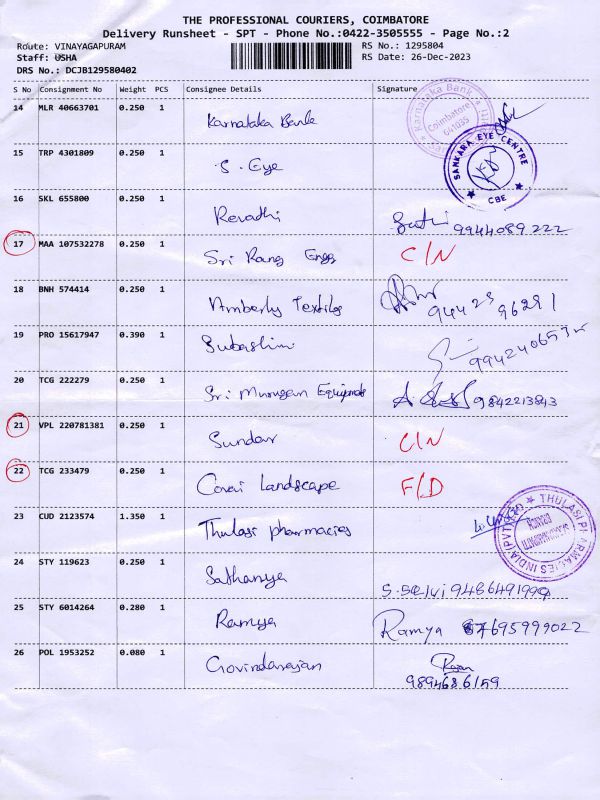 THE PROFESSIONAL COURIERS, COIMBATORE
Delivery Runsheet - SPT - Phone No.:0422-3505555 - Page No.:2
Route: VINAYAGAPURAM RS No.: 1295804
Staff: USHA RS Date: 26-Dec-2023
DRS No.: DCJB129580402
S No Consignment No Weight PCS Consignee Details Signature
14 MLR 40663701 0.250 1 Karnataka Bank
Karnataka Bank Coimbatore 641035
15 TRP 4301809 0.250 1 S. Eye
SANKARA EYE CENTRE CBE
16 SKL 655800 0.250 1 Revathi 9944089222
17 MAA 107532278 0.250 1 Sri Rang Engg C/N
18 BNH 574414 0.250 1 Amberly Textiles 9442996291
19 PRO 15617947 0.390 1 Subashini
20 TCG 222279 0.250 1 Sri Murugan Equipments 9842213843
21 VPL 220781381 0.250 1 Sundar C/N
22 TCG 233479 0.250 1 Covai Landscape F/D
23 CUD 2123574 1.350 1 Thulasi pharmacies
THULASI PHARMACIES INDIA (PVT)
24 STY 119623 0.250 1 Sathanya S. Selvi
25 STY 6014264 0.280 1 Ramya Ramya 7695999022
26 POL 1953252 0.080 1 Govindarajan Rajan
9894686159